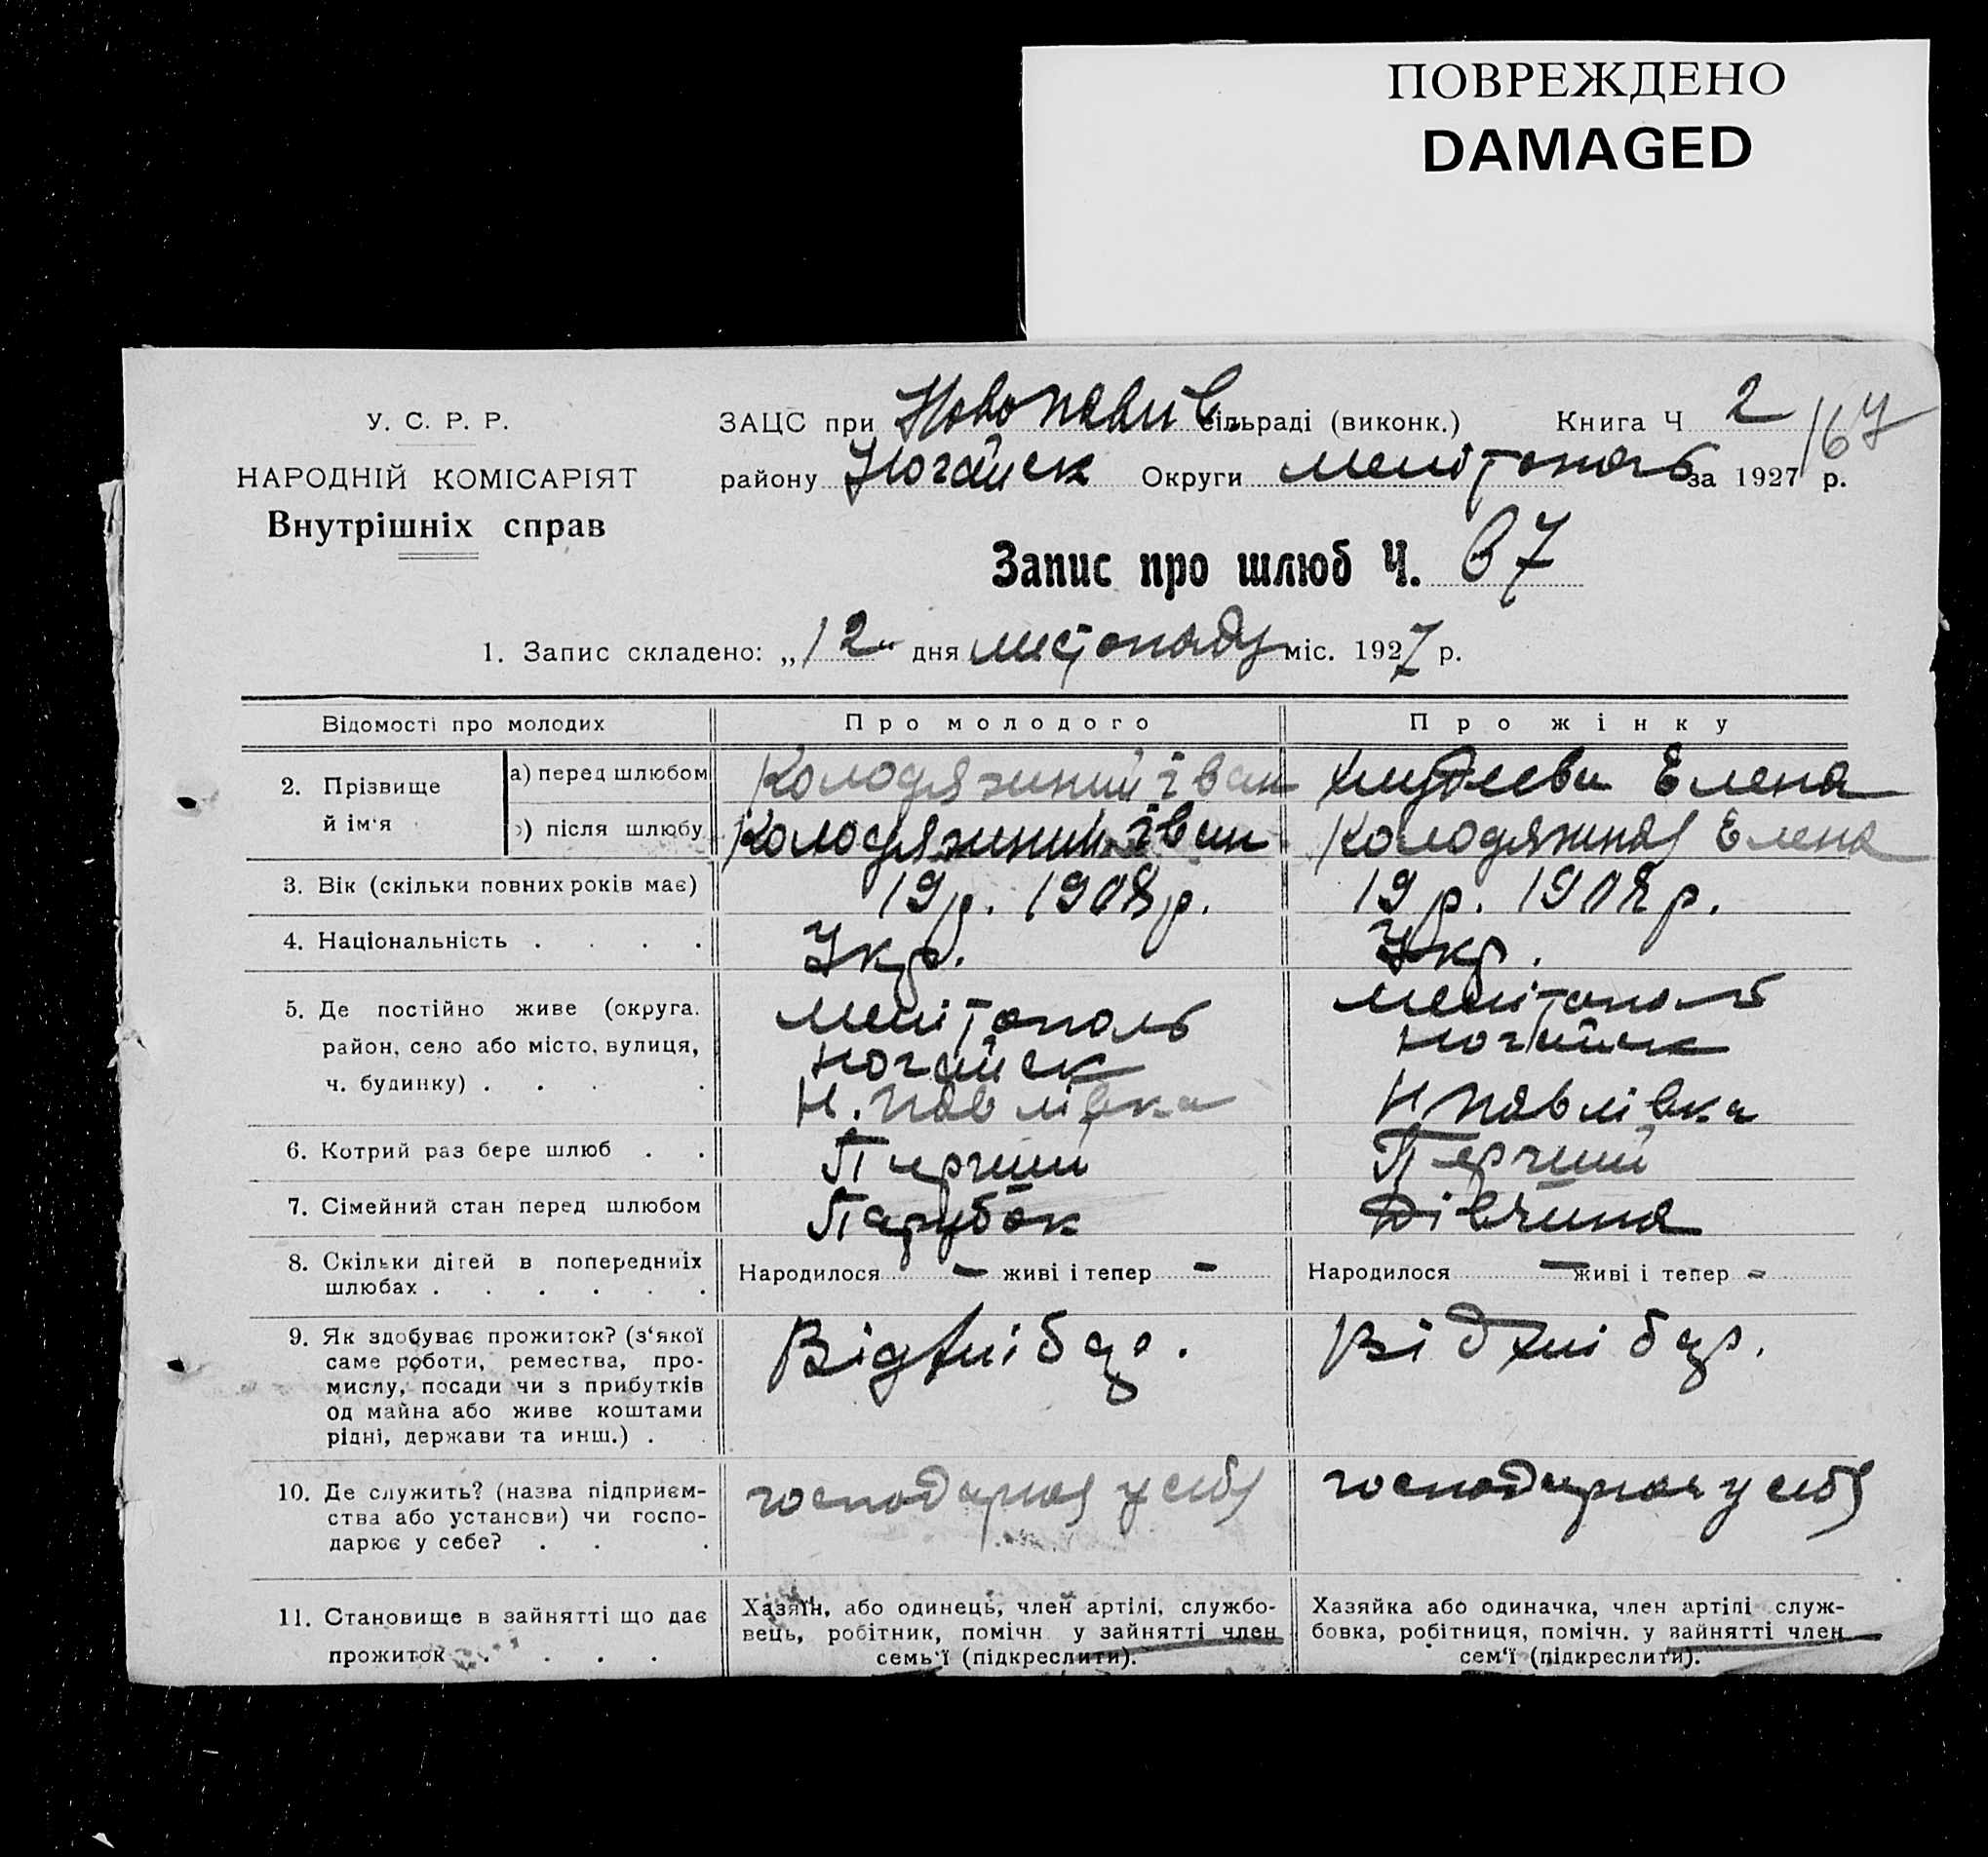 ПОВРЕЖДЕНО
DAMAGED
У. С. Р. Р.
НАРОДНІЙ КОМІСАРІЯТ
Внутрішніх справ
ЗАЦС при Новопавлів. сільраді (виконк.) Книга Ч 2
167
району Ногайск Округи Мелітополь за 1927 р.
Запис про шлюб Ч. 67
1. Запис складено: „12" дня листопаду міс. 1927 р.
Відомості про молодих Про молодого Про жінку
2. Прізвище й ім'я
а) перед шлюбом Колодяжний Іван Елена
б) після шлюбу Колодяжний Іван Колодяжная Елена
3. Вік (скільки повних років має) 19 р. 1908 р. 19 р. 1908 р.
4. Національність . . . . Укр. Укр.
5. Де постійно живе (округа. Мелітополь Мелітополь
район, село або місто, вулиця, Ногайск Ногайск
ч. будинку) . . . . Н. Павлівка Н Павлівка
6. Котрий раз бере шлюб . . Перший Перший
7. Сімейний стан перед шлюбом Парубок Дівчина
8. Скільки дітей в попередніїх Народилося — живі і тепер — Народилося — живі і тепер —
шлюбах . . . . . .
9. Як здобуває прожиток? (з'якої Від хлібор. Від хлібор.
саме роботи, ремества, про-
мислу, посади чи з прибутків
од майна або живе коштами
рідні, держави та инш.) .
10. Де служить? (назва підприєм- господарює у себе господарює у себе
ства або установи) чи госпо-
дарює у себе? . . .
11. Становище в зайнятті що дає
прожиток . . . .
Хазяїн, або одинець, член артілі, службо-
вець, робітник, помічн у зайнятті член
семь'ї (підкреслити).
Хазяйка або одиначка, член артілі служ-
бовка, робітниця, помічн. у зайнятті член
сем'ї (підкреслити).